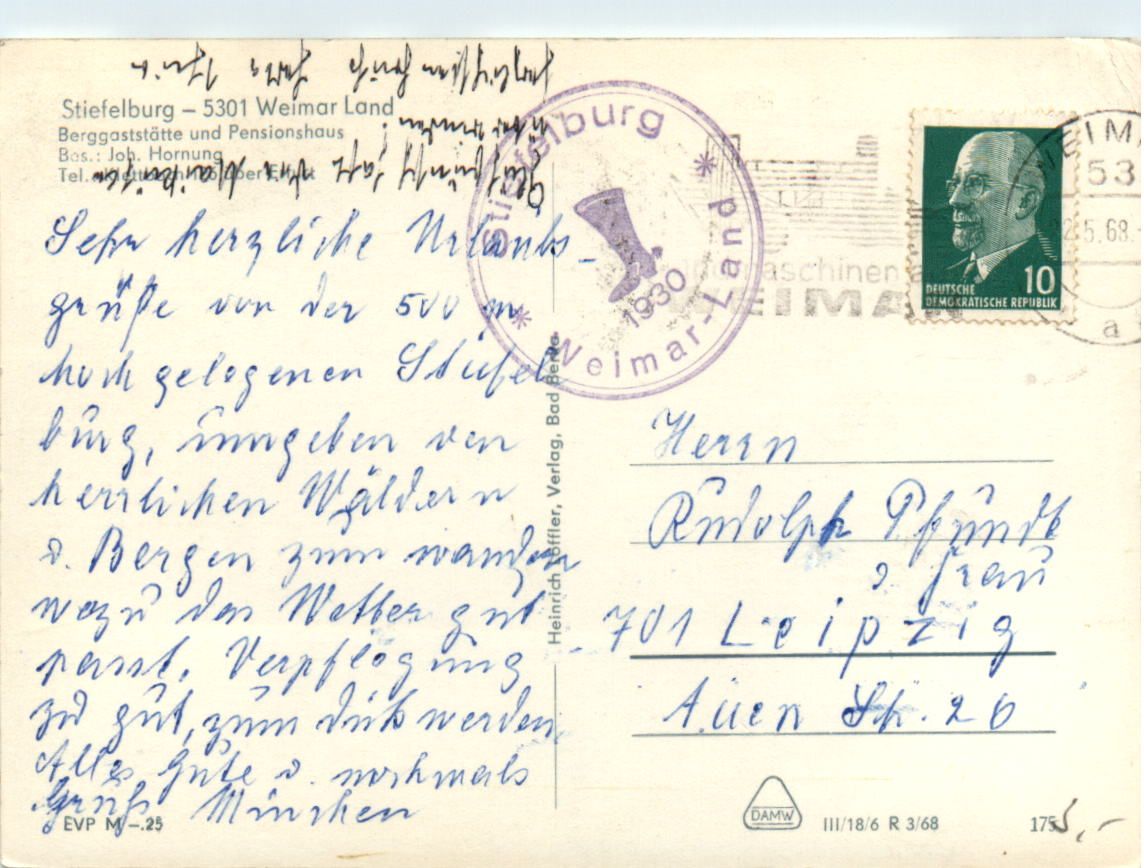 Stiefelburg – 5301 Weimar Land
Berggaststätte und Pensionshaus
Bes.: Joh. Hornung
Sehr herzliche Urlaubs-
grüße von der 500 m
hoch gelegenen Stiefel
burg, umgeben von
herrlichen Wäldern
u. Bergen zum wandern
wozu das Wetter gut
passt. Verpflegung
zu gut, zum dick werden
Alles Gute u. nochmals
Gruß München
EVP M –.25
Heinrich Löffler, Verlag, Bad Berka
Stiefelburg
1930
* Weimar-Land *
WEIMAR
53
5.68.
a
maschinen
WEIMAR
10
DEUTSCHE
DEMOKRATISCHE REPUBLIK
Herrn
Rudolph Pfundt
u. Frau
701 Leipzig
Auen Str. 26
DAMW
III/18/6 R 3/68
175
5,-